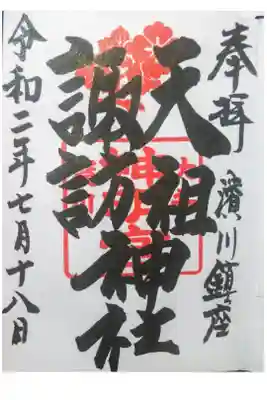 奉拝
濱川鎮座
天祖神社
諏訪神社
令和二年七月十八日